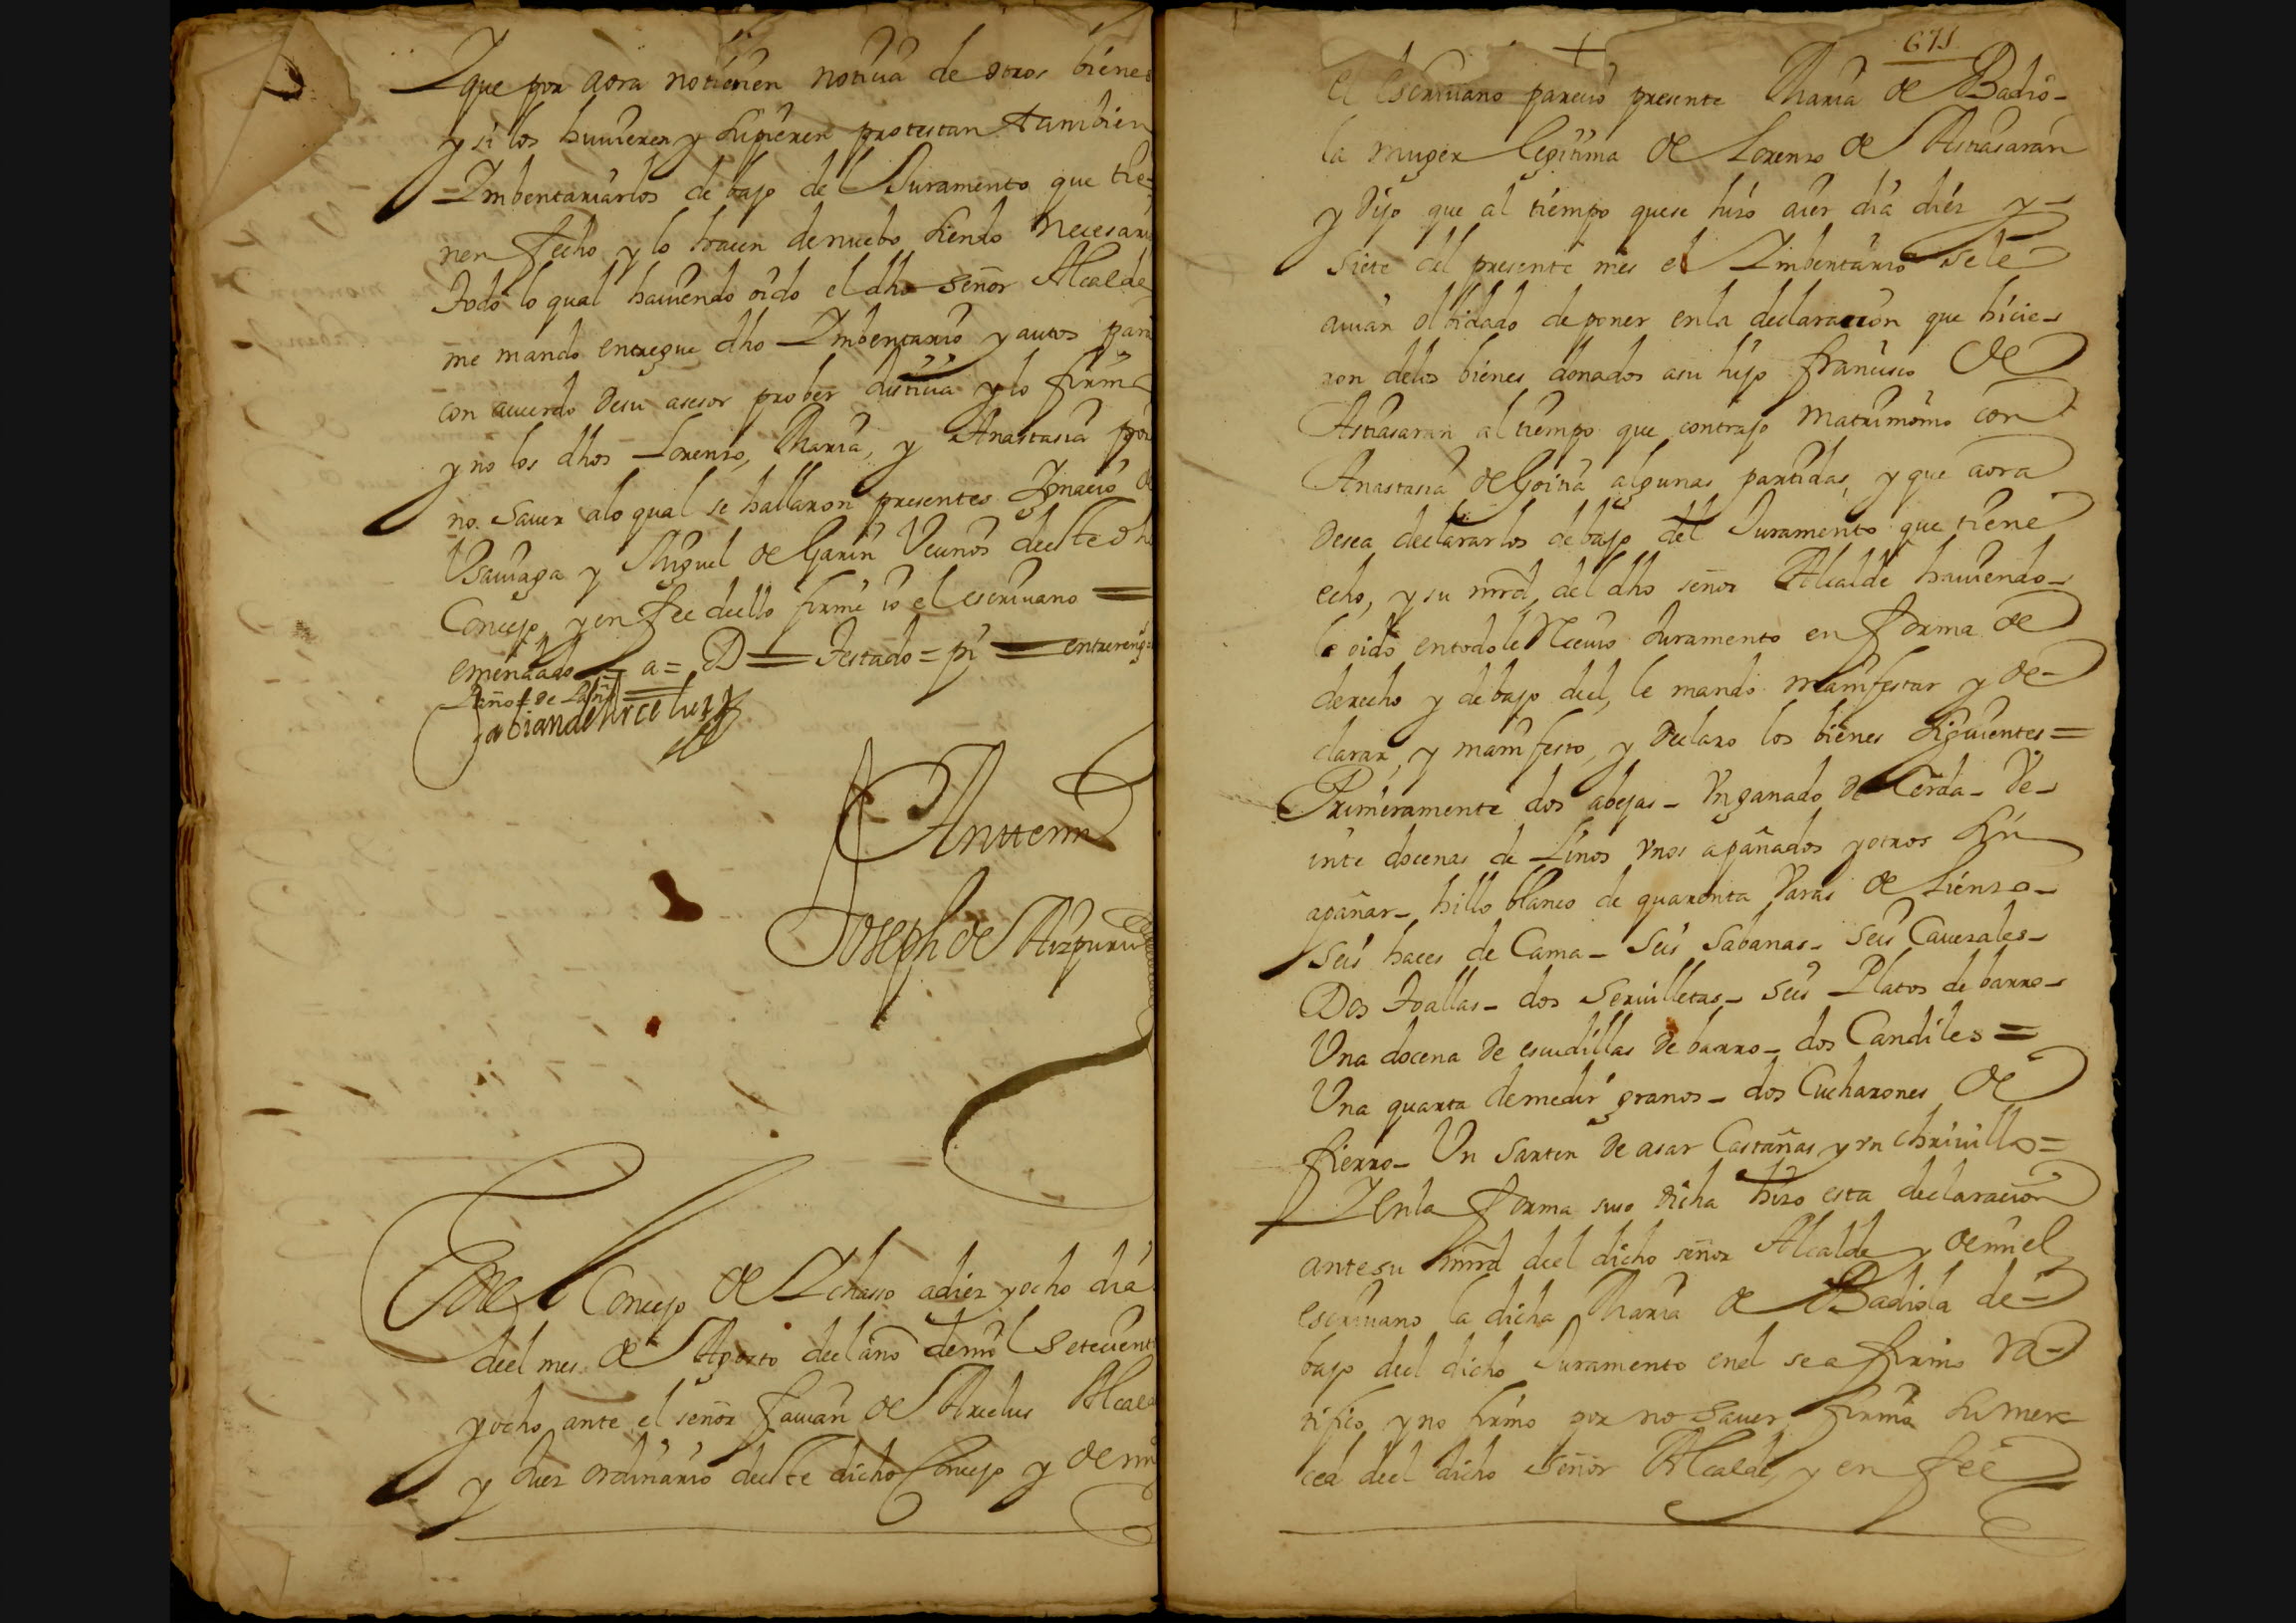 Y que por aora no tienen noticia de otros bienes
y si los huuieren y supieren protestan tambien
Imbentariarlos debajo del Juramento que tie-
nen fecho y lo hacen de nuebo siendo necesari
Todo lo qual hauiendo oido el dho señor Alcalde
me mando entregue dho Imbentario y autos para
con acuerdo de su asesor prober Justicia y lo firmo
y no los dhos Lorenzo, Maria, y Anastasia por
no sauer a lo qual se hallaron presentes Ignacio de
Vsauiaga y Miguel de Garin Vecinos deeste dho
Concejo y en fee deello firme io el escriuano =
emendado = a = D = Testado = pi = entrereng
Fabian de Arcelus
Ante mi
Joseph de Aizpuru
En el Concejo de Ichasso a diez y ocho dia
deel mes de Agosto deel año de mil setecient
y ocho ante el señor Fauian de Arcelus Alcal
y Juez ordinario deeste dicho Concejo y de mi
671
el escriuano parecio presente Maria de Badio-
la muger legitima de Lorenzo de Astiasaran
y dijo que al tiempo que se hizo aier dia diez y
siete del presente mes el Imbentario se le
auian olbidado de poner en la declaracion que hicie-
ron de los bienes donados a su hijo Francisco de
Astiasaran al tiempo que contrajo matrimonio con
Anastasia de Goitia algunas partidas, y que aora
desea declararlos debajo del Juramento que tiene
echo, y su mrd, del dho señor Alcalde hauiendo-
le oido en todo le Reciuio Juramento en forma de
derecho y debajo deel, le mando manifestar y de-
clarar, y manifesto, y declaro los bienes siguientes =
Primeramente dos abejas - Vn ganado de Cerda - Ve-
inte docenas de Linos vnos apañados y otros sin
apañar - hillo blanco de quarenta Varas de Lienzo -
Seis haces de Cama - Seis Sabanas - Seis Cauezales -
Dos Toallas - dos Seruilletas - Seis Platos de barro -
Vna docena de escudillas de barro - dos Candiles =
Vna quarta de medir granos - dos Cucharones de
fierro - Vn Sarten de asar Castañas y vn chriuillo =
Y en la forma suso dicha hizo esta declaracion
ante su mrd deel dicho señor Alcalde y de mi el
escriuano la dicha Maria de Badiola de-
bajo deel dicho Juramento en el se afirmo ra-
tifico, y no firmo por no sauer, firmo su mer-
ced deel dicho Señor Alcalde, y en fee